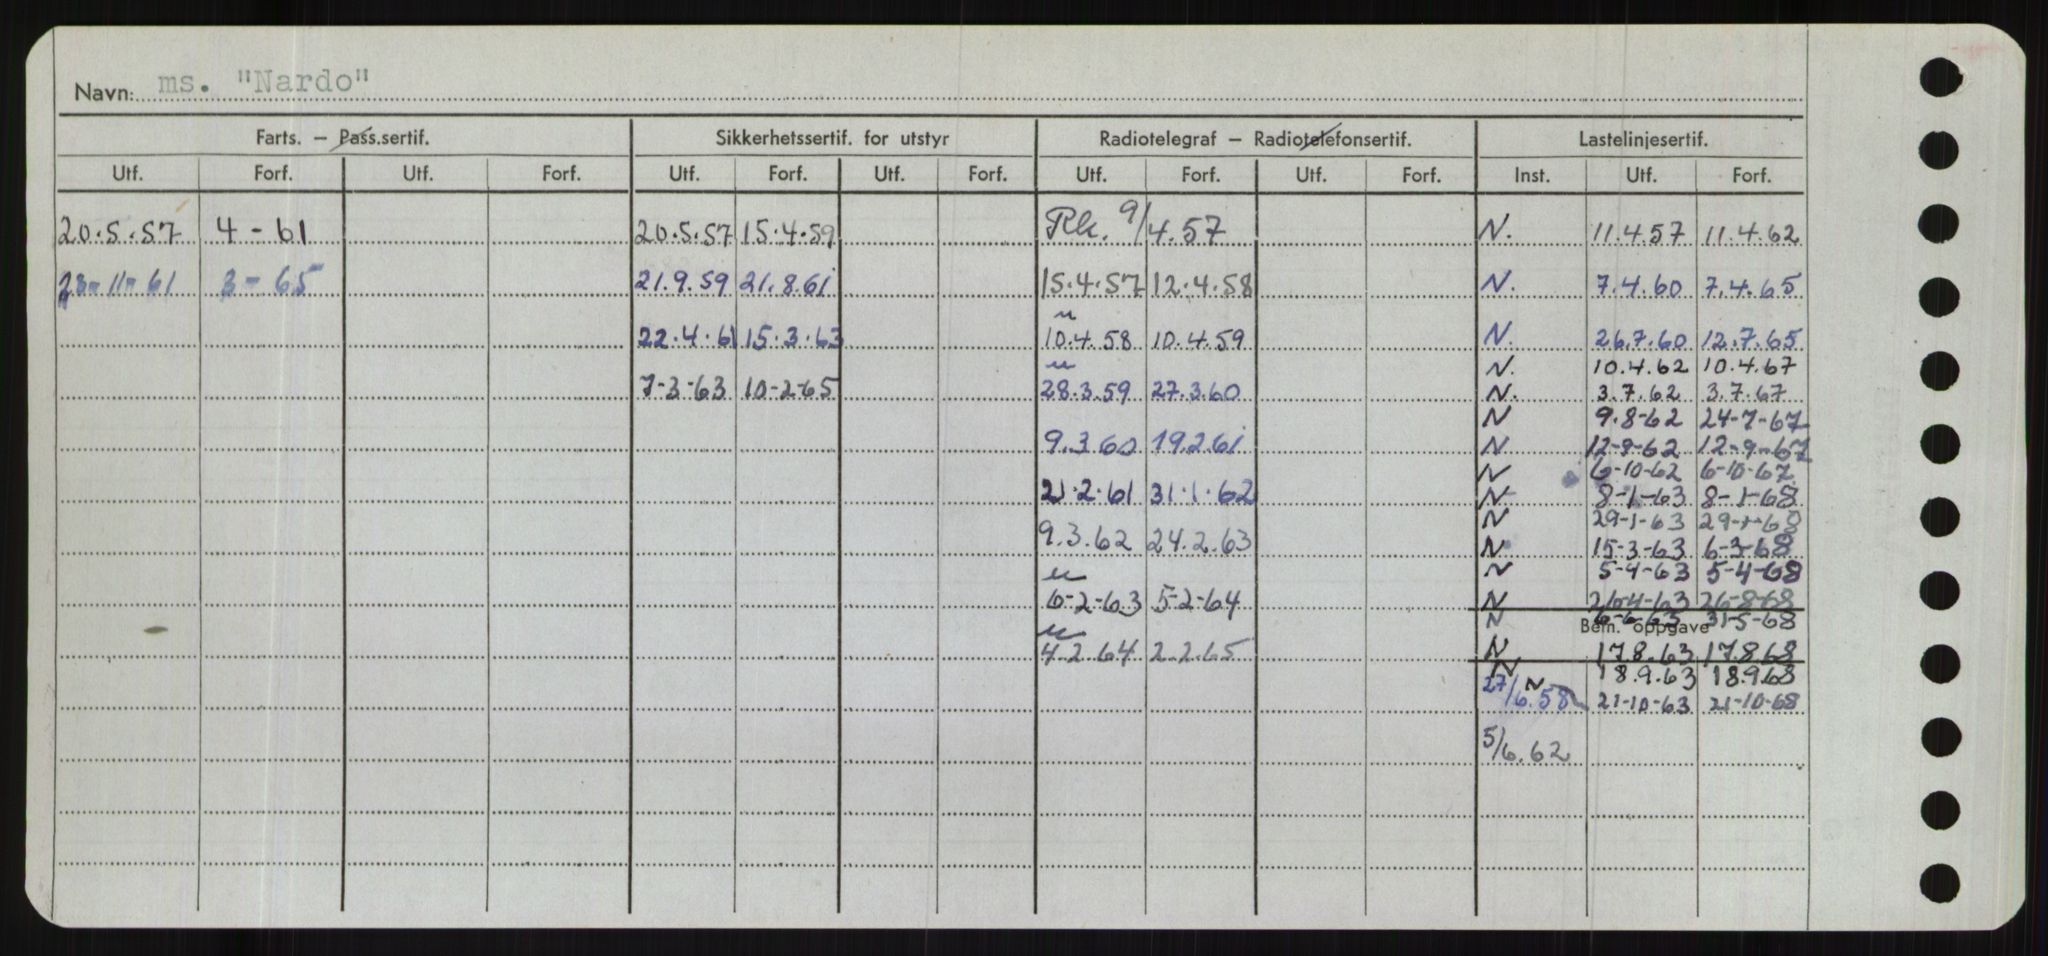 Navn: ms. "Nardo"
Farts. — Pass.sertif. Sikkerhetssertif. for utstyr Radiotelegraf — Radiotelefonsertif. Lastelinjesertif.
Utf. Forf. Utf. Forf. Utf. Forf. Utf. Forf. Utf. Forf. Utf. Forf. Inst. Utf. Forf.
20.5.57 4-61 20.5.57 15.4.59 Rk. 9/4.57 N. 11.4.57 11.4.62
23-11-61 3-65 21.9.59 21.8.61 15.4.57 12.4.58 N. 7.4.60 7.4.65
22.4.61 15.3.63 10.4.58 10.4.59 N. 26.7.60 12.7.65
N. 10.4.62 10.4.67
7-3-63 10-2-65 28.3.59 27.3.60 N. 3.7.62 3.7.67
N 9.8-62 24-7-67
9.3.60 19.2.61 N 12-9-62 12-9-67
N 6-10-62 6-10-67
21.2.61 31.1.62 N 8-1-63 8-1-68
N 29-1-63 29-1-68
9.3.62 24.2.63 N 15-3-63 6-3-68
N 5-4-63 5-4-68
6-2-63 5-2-64 N 26-8-68
N 6-6-63 31-5-68
Bem. oppgave
4.2.64 2.2.65 N 17.8.63 17.8.68
N 18.9.63 18.9.68
27/6.58 N 21-10-63 21-10-68
5/6.62